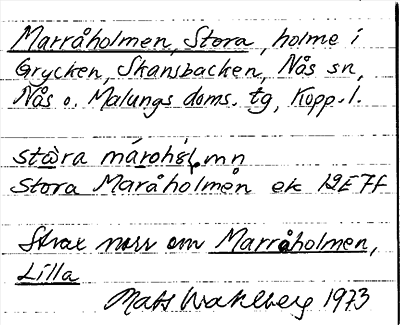 Marråholmen, Stora, holme i
Grycken, Skansbacken, Nås sn,
Nås o. Malungs doms. tg, Kopp. l.
Stora Maråholmen ek 12E7f
Strax norr om Marråholmen,
Lilla
Mats Wahlberg 1973